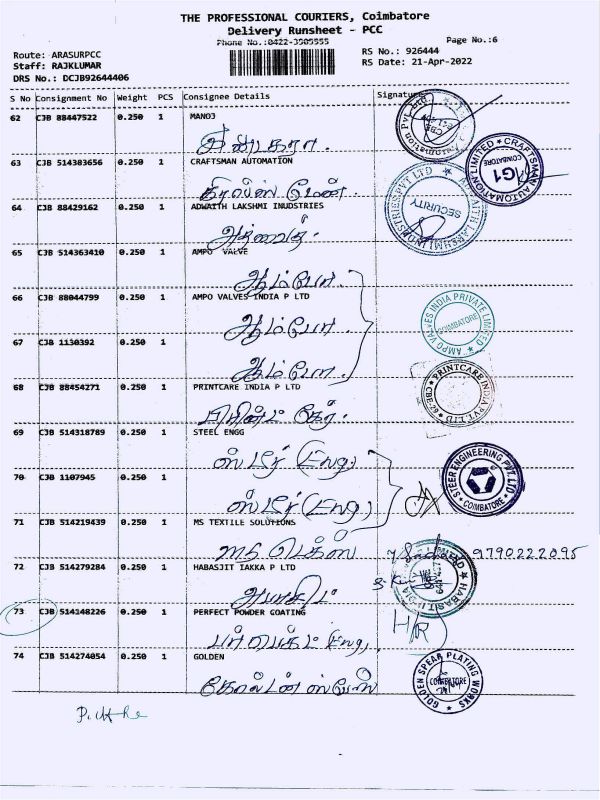 THE PROFESSIONAL COURIERS, Coimbatore
Delivery Runsheet - PCC
Phone No.:0422-3505555
Page No.:6
Route: ARASURPCC
RS No.: 926444
Staff: RAJKLUMAR
RS Date: 21-Apr-2022
DRS No.: DCJB92644406
S No Consignment No Weight PCS Consignee Details Signature
62 CJB 88447522 0.250 1 MANOJ
63 CJB 514383656 0.250 1 CRAFTSMAN AUTOMATION
CRAFTSMAN AUTOMATION LIMITED COIMBATORE IG1
64 CJB 88429162 0.250 1 ADWAITH LAKSHMI INUDSTRIES
SECURITY
65 CJB 514363410 0.250 1 AMPO VALVE
ஆம்போ.
66 CJB 88044799 0.250 1 AMPO VALVES INDIA P LTD
ஆம்போ.
AMPO VALVES INDIA PRIVATE LIMITED COIMBATORE
67 CJB 1130392 0.250 1
ஆம்போ.
68 CJB 88454271 0.250 1 PRINTCARE INDIA P LTD
PRINTCARE INDIA PVT LTD
69 CJB 514318789 0.250 1 STEEL ENGG
ஸ்டீர் (Eng)
70 CJB 1107945 0.250 1
ஸ்டீர் (Eng)
STEER ENGINEERING PVT. LTD COIMBATORE
71 CJB 514219439 0.250 1 MS TEXTILE SOLUTIONS
9790222095
72 CJB 514279284 0.250 1 HABASJIT IAKKA P LTD
73 CJB 514148226 0.250 1 PERFECT POWDER COATING
H/R
74 CJB 514274054 0.250 1 GOLDEN
GOLDEN SPEAR PLATING WORKS COIMBATORE